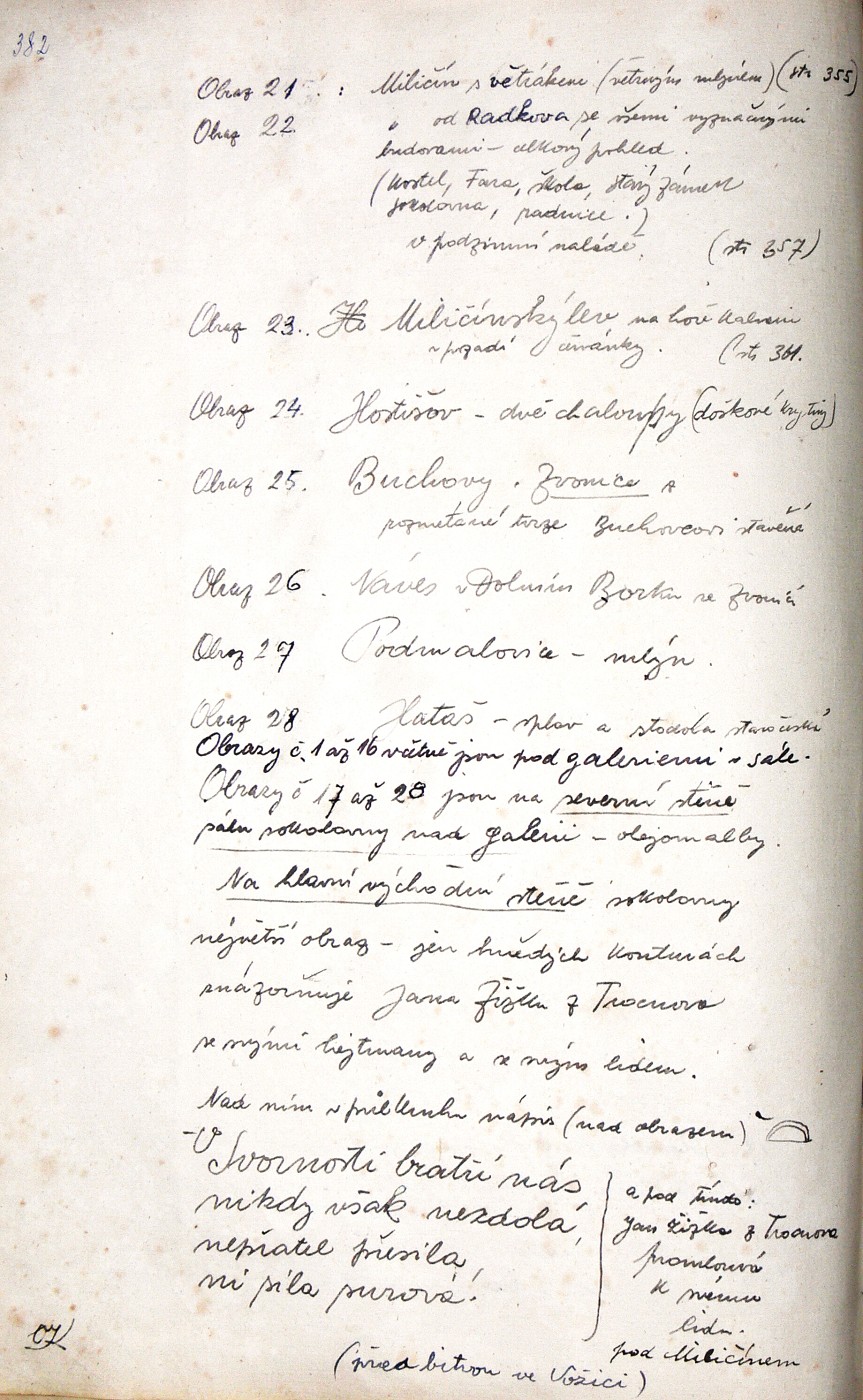 382
Obraz 21 . : Miličín s větrákem (větrným mlýnem) (str 355)
Obraz 22. „ od Radkova se všemi význačnými
budovami – celkový pohled .
(Kostel, Fara, škola, starý zámek
sokolovna, radnice .)
v podzimní náladě. (str 357)
Obraz 23. Miličínský lev na hoře Kalvarii
v pozadí čeřánky . (str 361.
Obraz 24. Hostišov – dvě chaloupky (doškové krytiny)
Obraz 25. Buchovy . Zvonice z
rozmetané tvrze Buchovcovi stavěná
Obraz 26 . Náves v Dolním Borku se zvonicí
Obraz 27 Podmalovice – mlýn .
Obraz 28 Hataš – splav a stodola staročeská
Obrazy č. 1 až 16 včetně jsou pod galeriemi v sále.
Obrazy č 17 až 28 jsou na severní stěně
sálu sokolovny nad galerií – olejomalby.
Na hlavní východní stěně sokolovny
největší obraz – jen hnědých konturách
znázorňuje Jana Žižku z Trocnova
se svými hejtmany a se svým lidem.
Nad ním v půlkruhu nápis (nad obrazem)
– V Svornosti bratří nás
nikdy však nezdolá,
nepřátel přesila,
ni síla surová!
a pod tímto:
Jan Žižka z Trocnova
promlouvá
k svému
lidu.
pod Miličínem
(před bitvou ve Vožici)